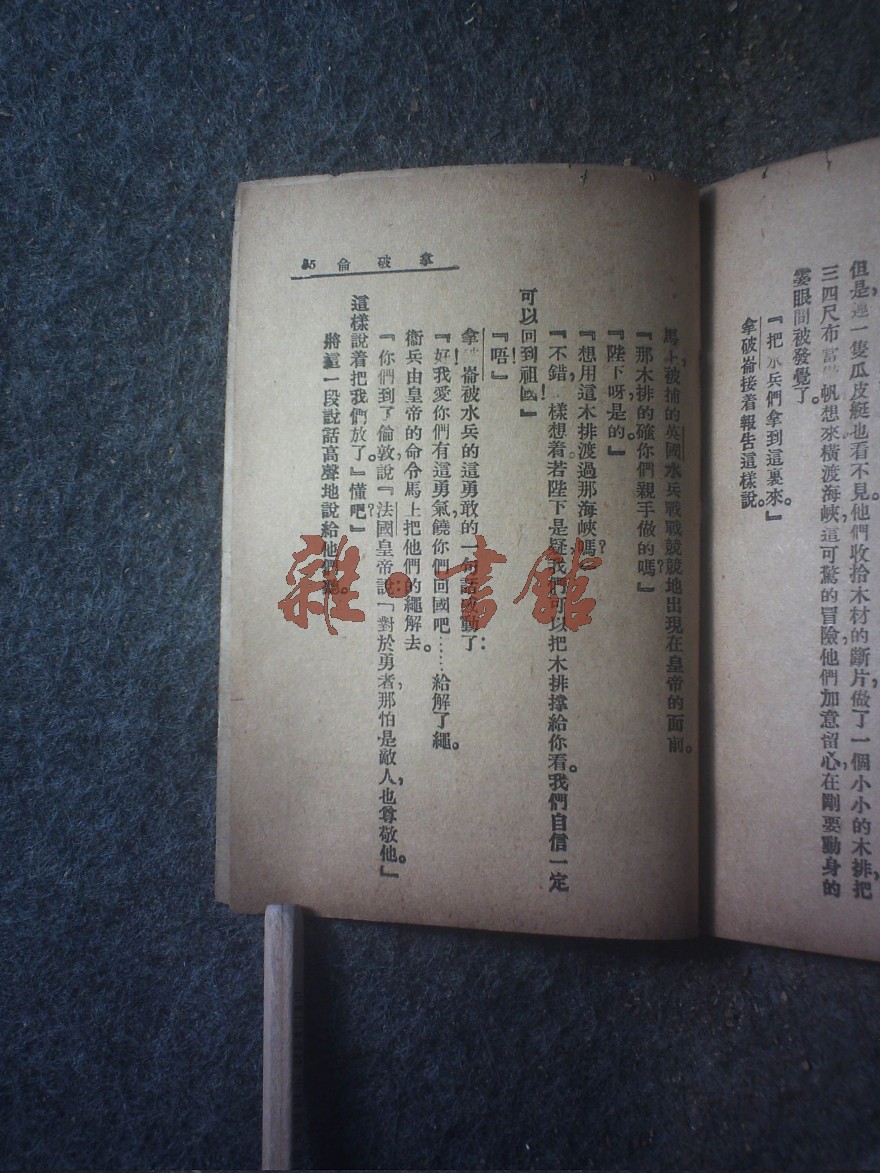 但是,連一隻瓜皮艇也看不見。他們收拾木材的斷片,做了一個小小的木排,把
三四尺布當帆想來橫渡海峽,這可驚的冒險,他們加意留心,在剛要動身的
霎眼間被發覺了。
『把水兵們拿到這裏來。』
拿破崙接着報告這樣說。
拿破侖
馬上,被捕的英國水兵戰戰競競地出現在皇帝的面前。
『那木排的確,你們親手做的嗎?』
『陛下呀,是的。』
『想用這木排渡過那海峽嗎?』
『不錯!樣想着,若陛下是疑,我們可以把木排撑給你看。我們自信一定
可以回到祖國!』
『唔!』
拿破崙被水兵的這勇敢的一句話感動了:
『好!我愛你們有這勇氣,饒你們回國吧……給解了繩。
衞兵由皇帝的命令馬上把他們的繩解去。
『你們到了倫敦說『法國皇帝說「對於勇者,那怕是敵人,也尊敬他。』
這樣說着把我們放了。』懂吧?』
將這一段說話高聲地說給他們聽。
雜·書館